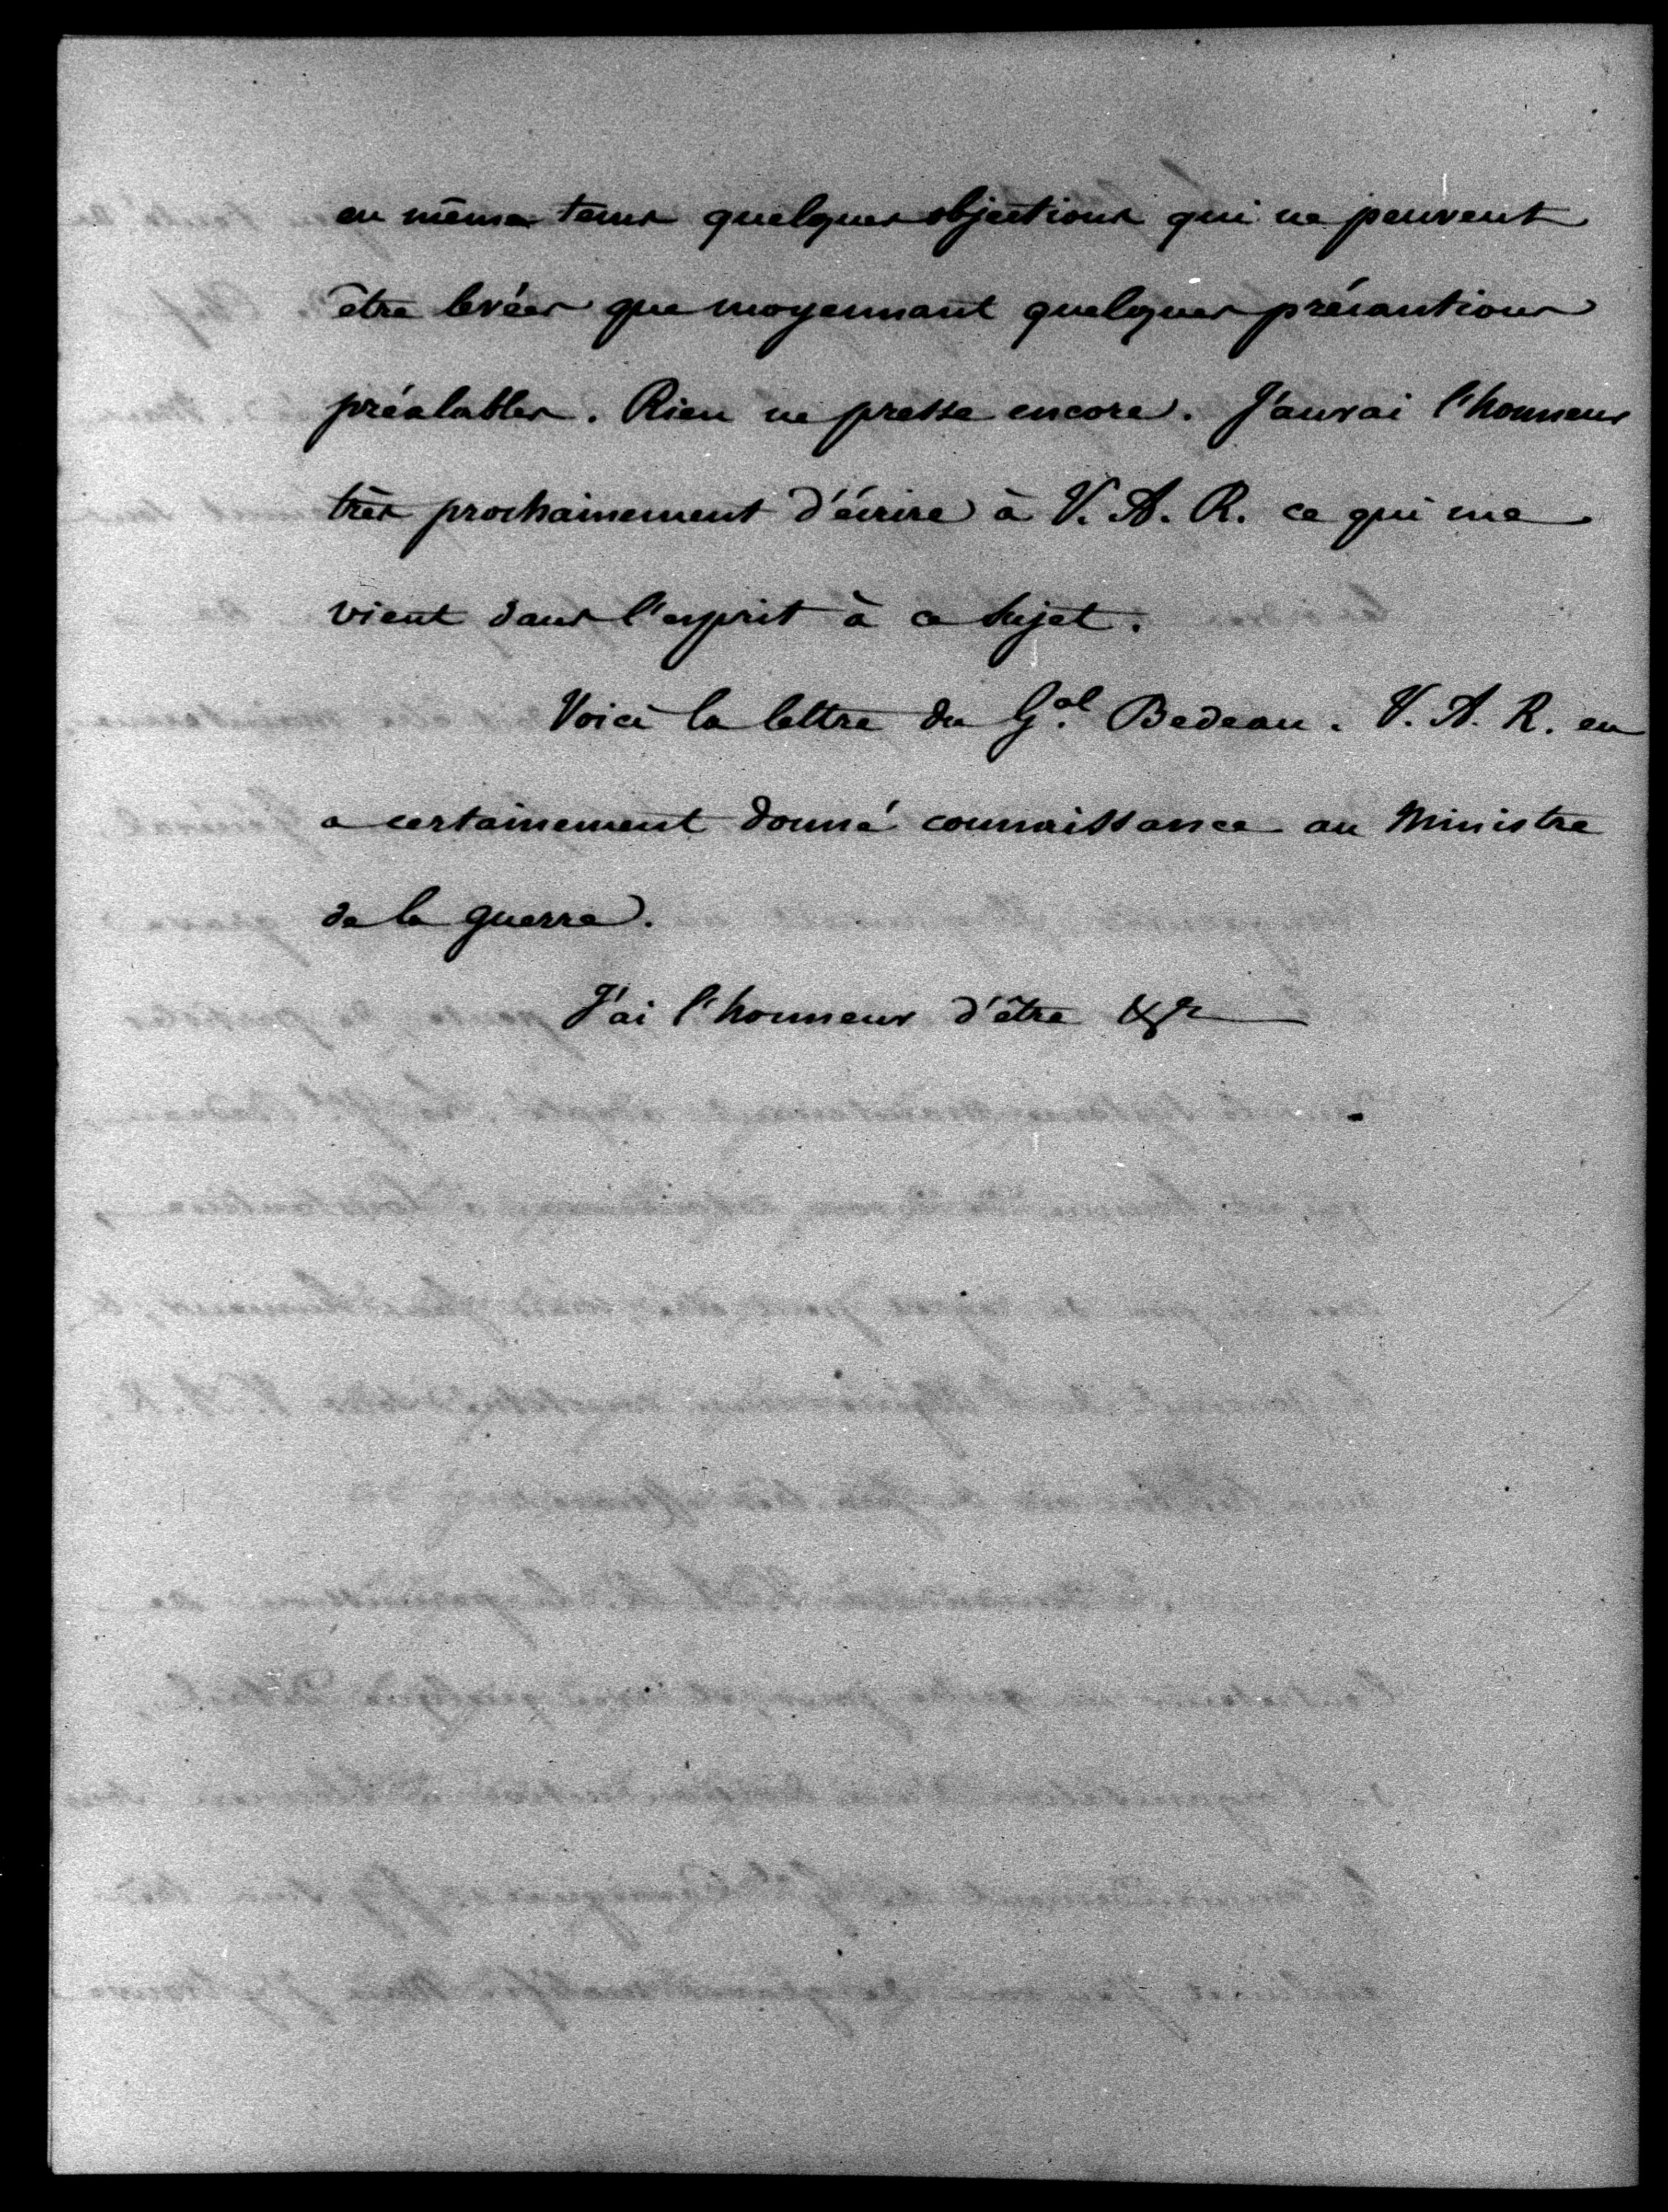 en même tems quelques objections qui ne peuvent
être levées que moyennant quelques précautions
préalables. Rien ne presse encore. J'aurai l'honneur
très prochainement d'écrire à V. A. R. ce qui me
vient dans l'esprit à ce sujet.
Voici la lettre du Gal. Bedeau. V. A. R. en
a certainement donné connaissance au Ministre
de la guerre.
J'ai l'honneur d'être &a